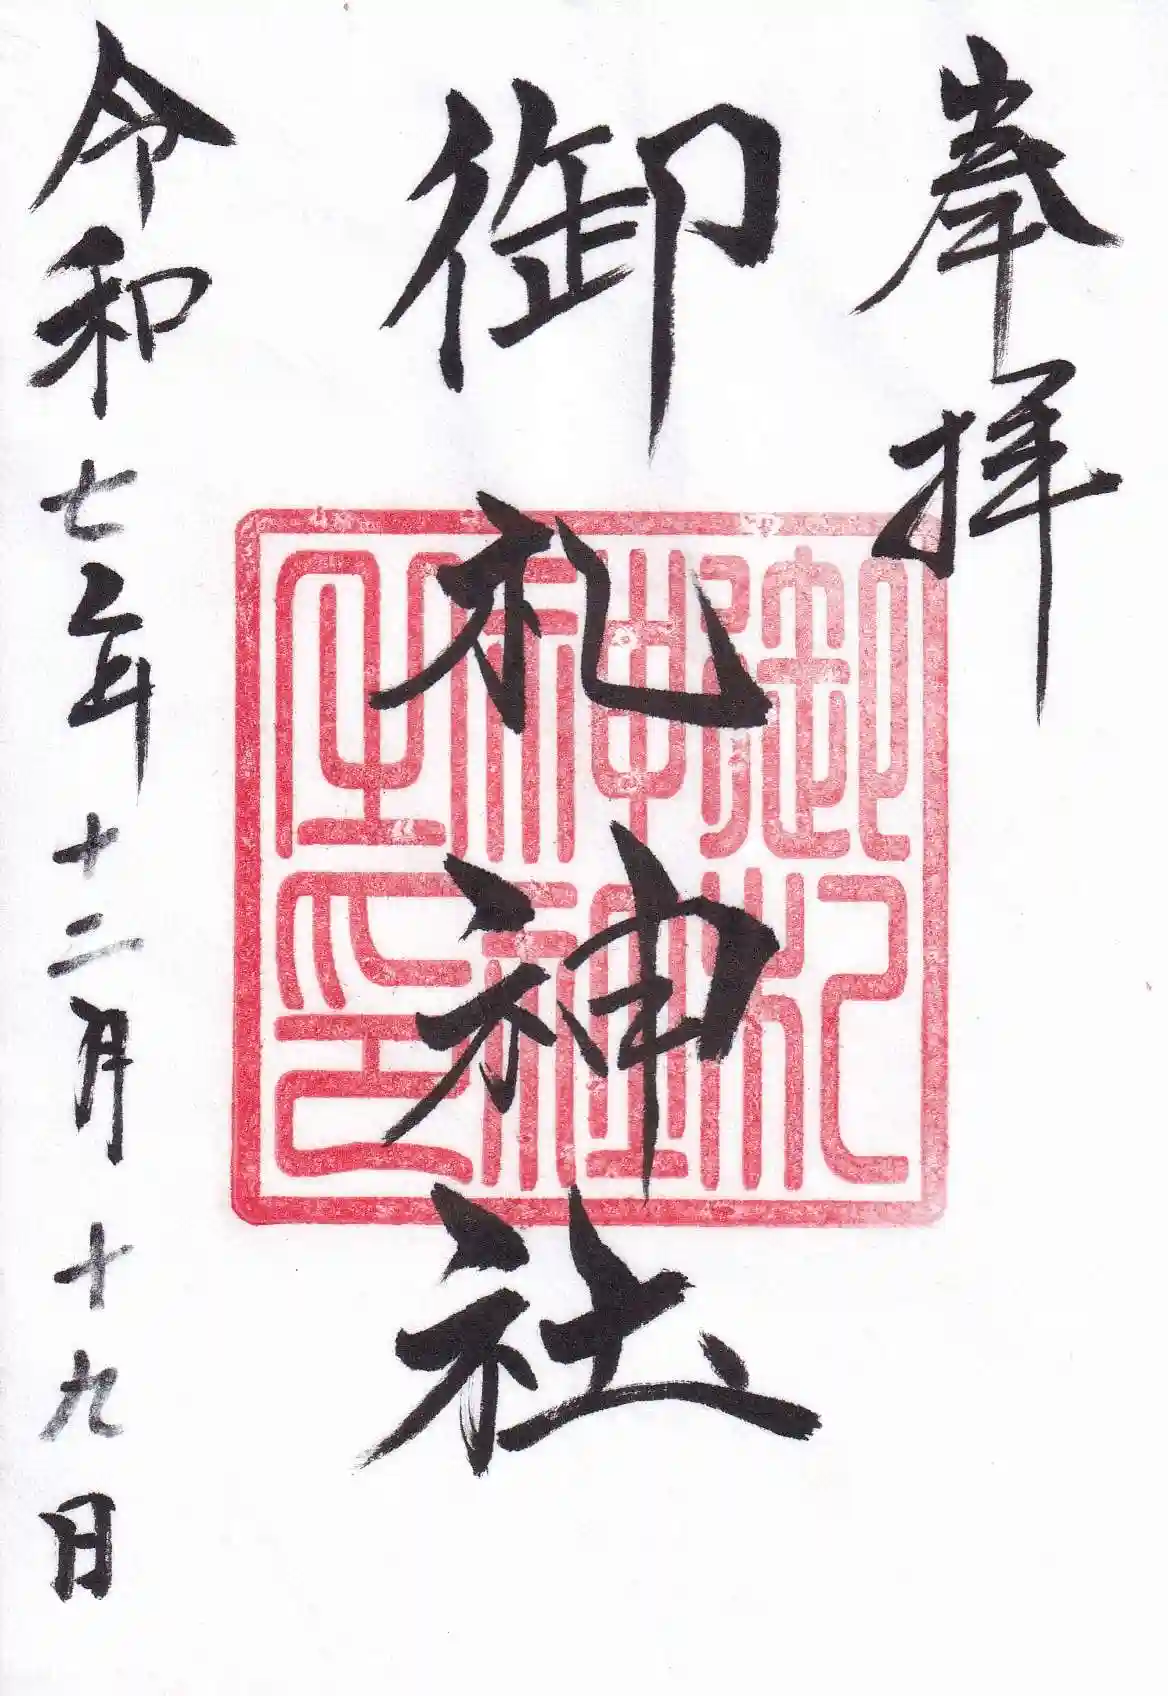 奉拝
御札神社
御札神社神社之印
令和七年十二月十九日